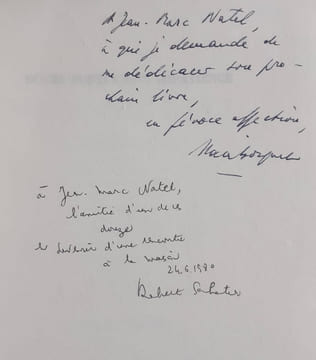 à Jean-Marc Natel,
à qui je demande de
me dédicacer son pro-
chain livre,
en féroce affection,
à Jean-Marc Natel,
l'amitié d'un de ces
douze
le souvenir d'une rencontre
à la maison
24.6.1980
Robert Sabatier